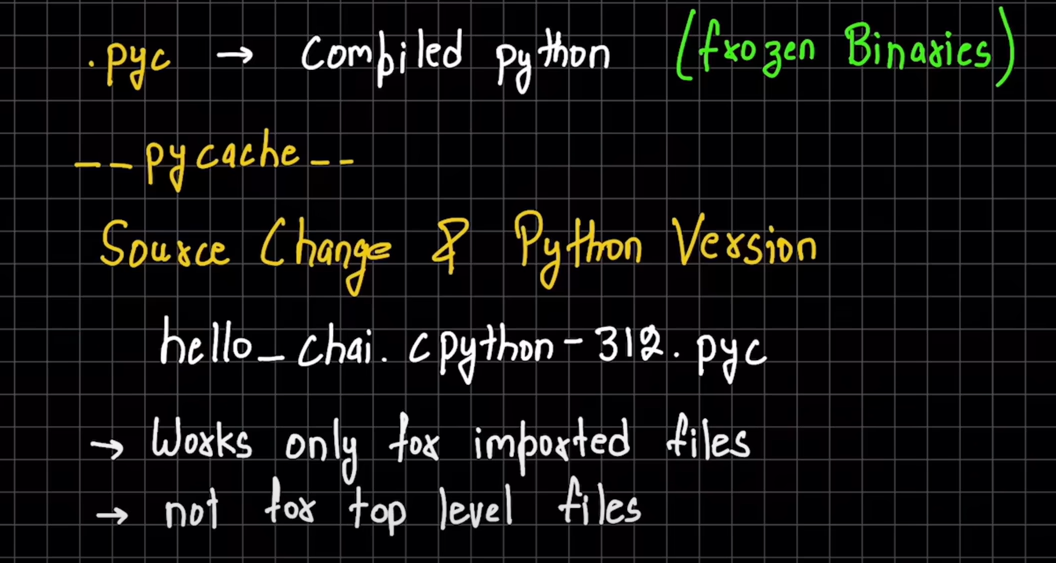 .pyc → Compiled python (frozen Binaries)
__pycache__
Source Change & Python Version
hello_chai.cpython-312.pyc
→ Works only for imported files
→ not for top level files